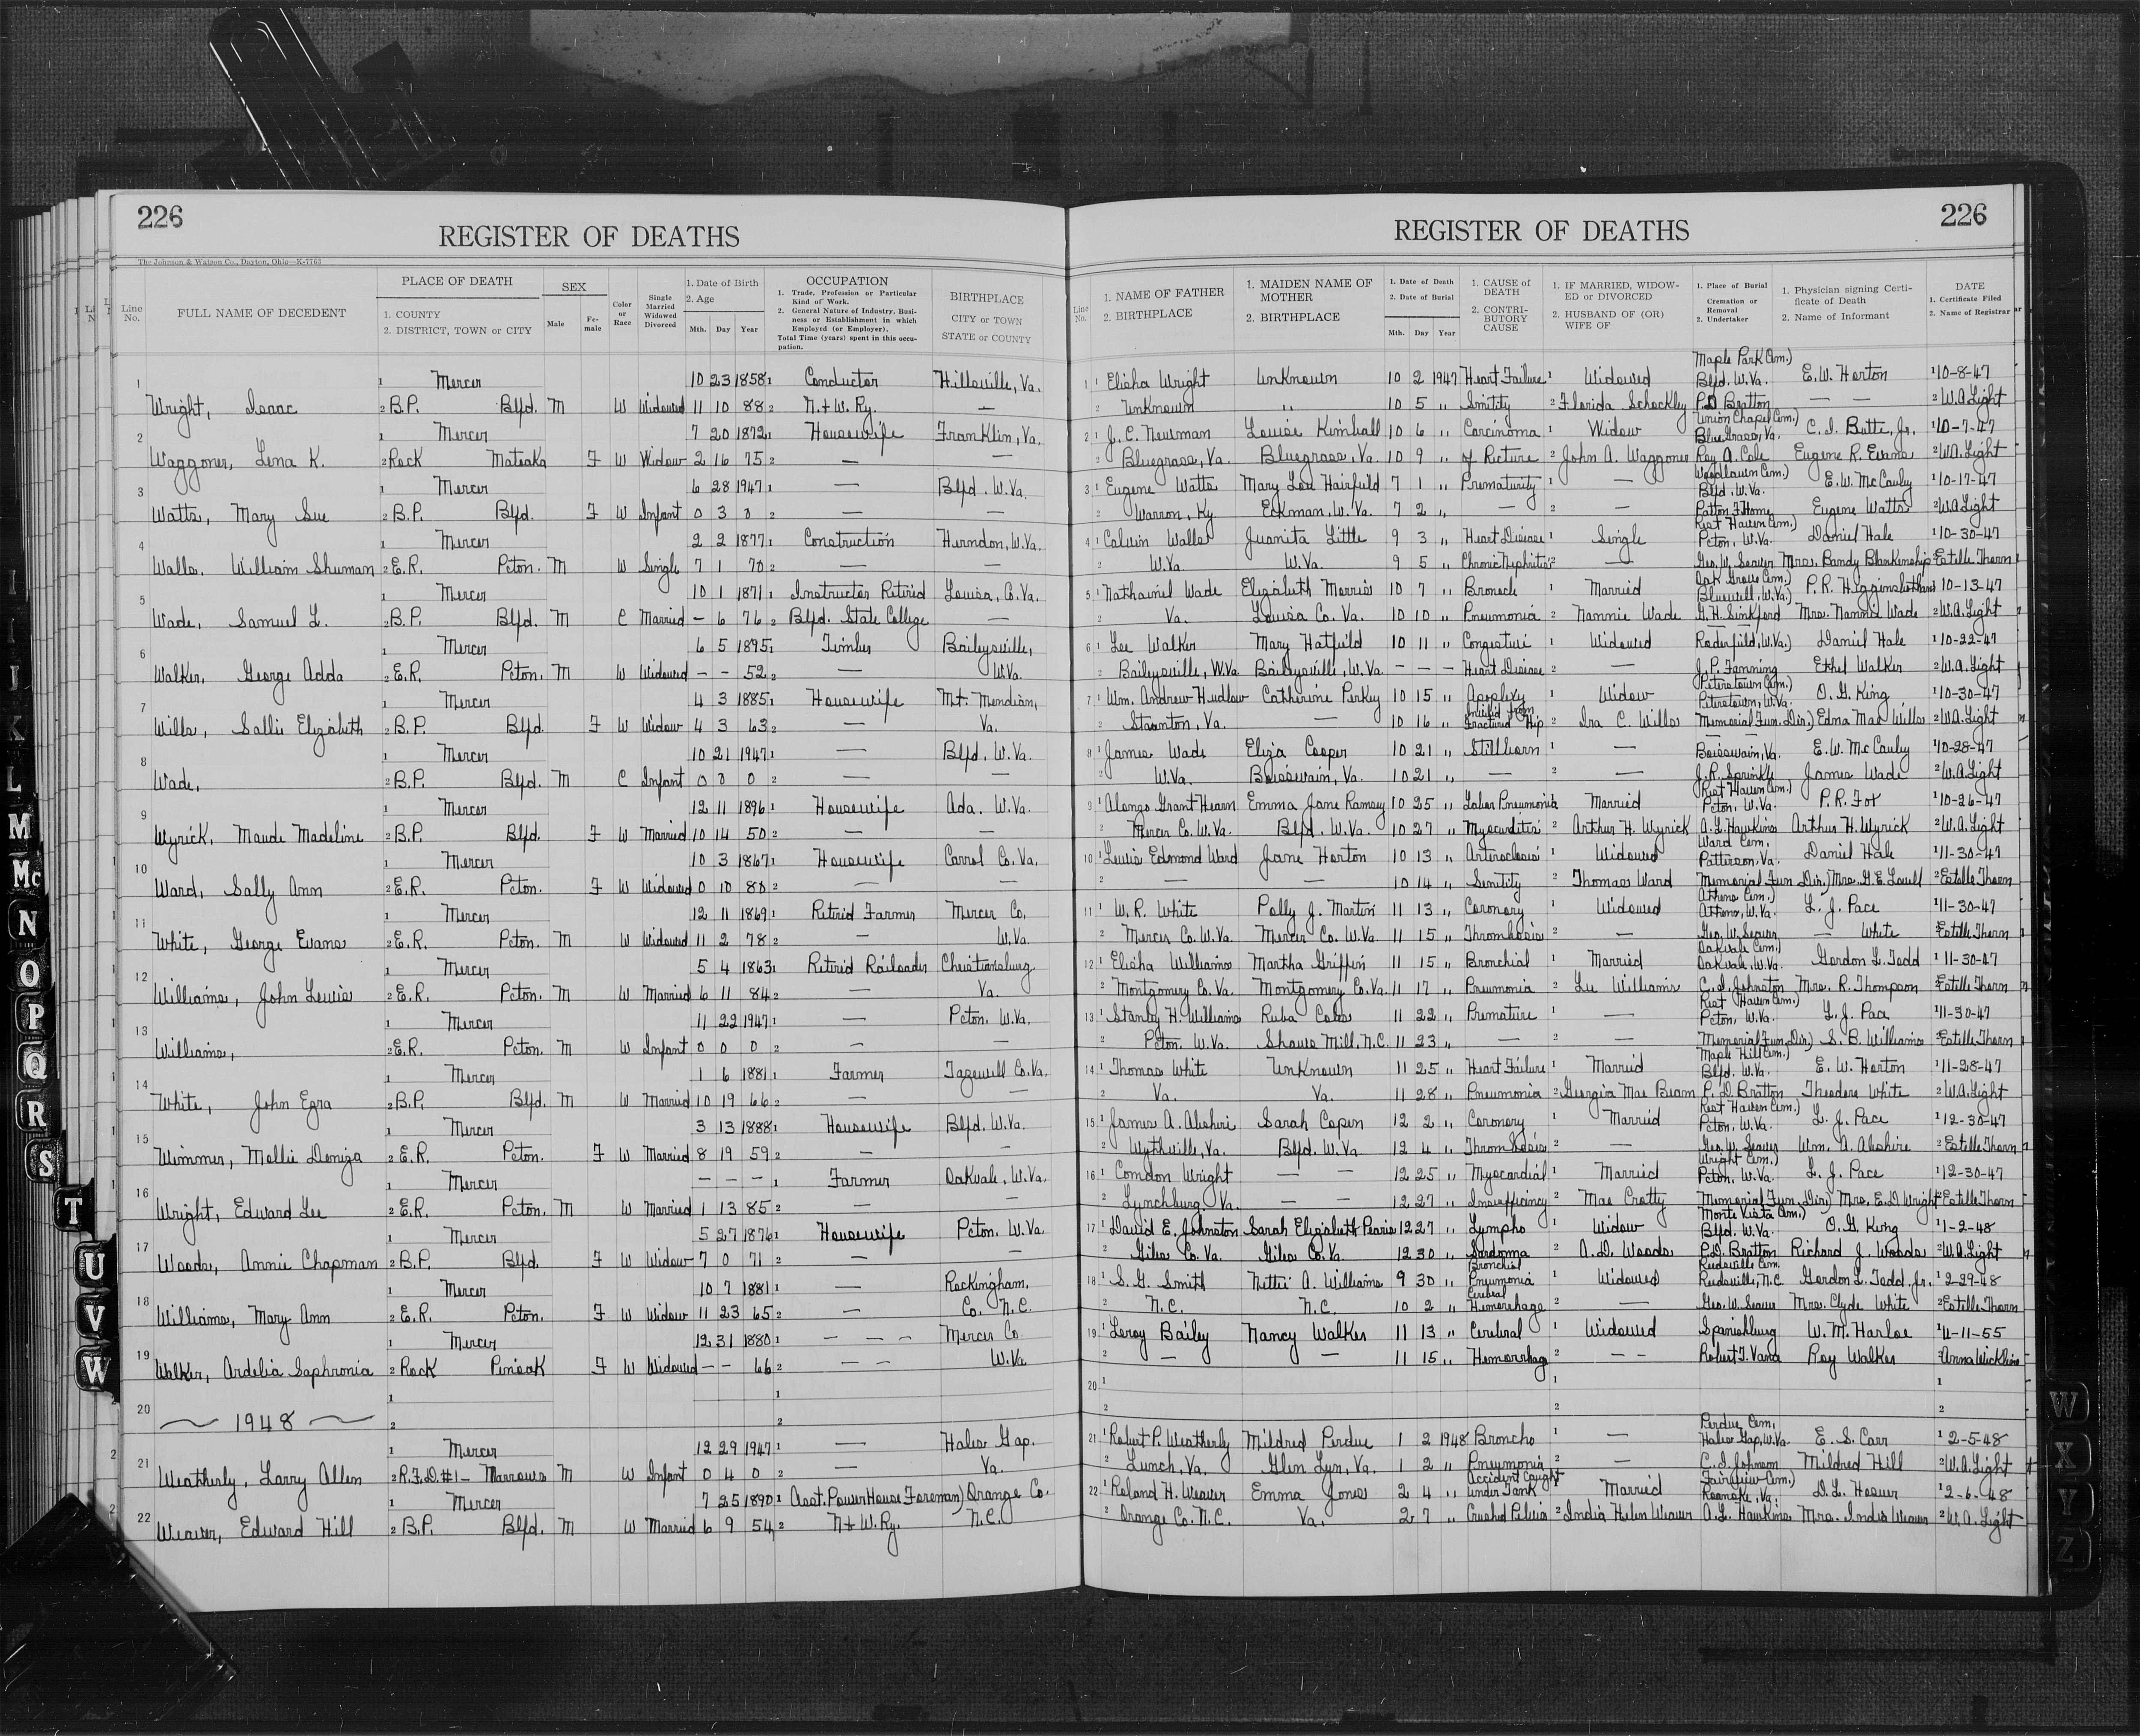 226
REGISTER OF DEATHS
The Johnson & Watson Co., Dayton, Ohio—K-7763
Line No.
FULL NAME OF DECEDENT
PLACE OF DEATH
1. COUNTY
2. DISTRICT, TOWN or CITY
SEX
Male
Female
Color or Race
Single Married Widowed Divorced
1. Date of Birth
2. Age
Mth. Day Year
OCCUPATION
1. Trade, Profession or Particular Kind of Work.
2. General Nature of Industry, Business or Establishment in which Employed (or Employer).
Total Time (years) spent in this occupation.
BIRTHPLACE
CITY or TOWN
STATE or COUNTY
1 1 Mercer 10 23 1858 1 Conductor Hillsville, Va.
Wright, Isaac 2 B.P. Blfd. M W Widowed 11 10 88 2 N. & W. Ry. —
2 1 Mercer 7 20 1872 1 Housewife Franklin, Va.
Waggoner, Lena K. 2 Rock Matoaka F W Widow 2 16 75 2 — —
3 1 Mercer 6 28 1947 1 — Blfd. W.Va.
Watts, Mary Sue 2 B.P. Blfd. F W Infant 0 3 0 2 — —
4 1 Mercer 2 2 1877 1 Construction Herndon, W.Va.
Walls. William Shuman 2 E.R. Pcton. M W Single 7 1 70 2 — —
5 1 Mercer 10 1 1871 1 Instructor Retired Louisa, Co. Va.
Wade, Samuel L. 2 B.P. Blfd. M C Married — 6 76 2 Blfd. State College —
6 1 Mercer 6 5 1895 1 Timber Baileysville,
Walker, George Adda 2 E.R. Pcton. M W Widowed — — 52 2 — W.Va.
7 1 Mercer 4 3 1885 1 Housewife Mt. Meridian,
Wills, Sallie Elizabeth 2 B.P. Blfd. F W Widow 4 3 63 2 — Va.
8 1 Mercer 10 21 1947 1 — Blfd. W.Va.
Wade, 2 B.P. Blfd. M C Infant 0 0 0 2 — —
9 1 Mercer 12 11 1896 1 Housewife Ada. W.Va.
Wyrick, Maude Madeline 2 B.P. Blfd. F W Married 10 14 50 2 — —
10 1 Mercer 10 3 1867 1 Housewife Carrol Co. Va.
Ward, Sally Ann 2 E.R. Pcton. F W Widowed 0 10 80 2 — —
11 1 Mercer 12 11 1869 1 Retired Farmer Mercer Co.
White, George Evans 2 E.R. Pcton. M W Widowed 11 2 78 2 — W.Va.
12 1 Mercer 5 4 1863 1 Retired Railroader Christiansburg
Williams, John Lewis 2 E.R. Pcton. M W Married 6 11 84 2 — Va.
13 1 Mercer 11 22 1947 1 — Pcton. W.Va.
Williams, 2 E.R. Pcton. M W Infant 0 0 0 2 — —
14 1 Mercer 1 6 1881 1 Farmer Tazewell Co. Va.
White, John Ezra 2 B.P. Blfd. M W Married 10 19 66 2 — —
15 1 Mercer 3 13 1888 1 Housewife Blfd. W.Va.
Wimmer, Mollie Deniza 2 E.R. Pcton. F W Married 8 19 59 2 — —
16 1 Mercer — — — 1 Farmer Oakvale, W.Va.
Wright, Edward Lee 2 E.R. Pcton. M W Married 1 13 85 2 — —
17 1 Mercer 5 27 1876 1 Housewife Pcton. W.Va.
Woods, Annie Chapman 2 B.P. Blfd. F W Widow 7 0 71 2 — —
18 1 Mercer 10 7 1881 1 — Rockingham.
Williams, Mary Ann 2 E.R. Pcton. F W Widow 11 23 65 2 — Co. N.C.
19 1 Mercer 12 31 1880 1 — — — Mercer Co
Walker, Ardelia Saphronia 2 Rock Pinoak F W Widowed — — 66 2 — — W.Va.
20 1 1
1948 2 2
21 1 Mercer 12 29 1947 1 — Hales Gap.
Weatherly, Larry Allen 2 R.F.D. #1 — Narrows M W Infant 0 4 0 2 — Va.
22 1 Mercer 7 25 1890 1 Asst. Power House Foreman) Orange Co.
Weaver, Edward Hill 2 B.P. Blfd. M W Married 6 9 54 2 N & W. Ry. N.C.
226
REGISTER OF DEATHS
Line No.
1. NAME OF FATHER
2. BIRTHPLACE
1. MAIDEN NAME OF MOTHER
2. BIRTHPLACE
1. Date of Death
2. Date of Burial
Mth. Day Year
1. CAUSE of DEATH
2. CONTRIBUTORY CAUSE
1. IF MARRIED, WIDOWED or DIVORCED
2. HUSBAND OF (OR) WIFE OF
1. Place of Burial Cremation or Removal
2. Undertaker
1. Physician signing Certificate of Death
2. Name of Informant
DATE
1. Certificate Filed
2. Name of Registrar
Maple Park Cem.)
1 1 Elisha Wright Unknown 10 2 1947 Heart Failure 1 Widowed Blfd. W.Va. E.W. Horton 1 10-8-47
2 Unknown " 10 5 " Senility 2 Florida Schockley P.D. Bratton — — 2 W.A. Light
Union Chapel Cem.)
2 1 J. C. Newman Louise Kimball 10 6 " Carcinoma 1 Widow Blue Grass, Va. C. I. Butte, Jr. 1 10-7-47
2 Bluegrass, Va. Bluegrass, Va. 10 9 " of Recture 2 John A. Waggoner Roy A. Cole Eugene R. Evans 2 W.A. Light
Woodlawn Cem.)
3 1 Eugene Watts Mary Lou Hairfield 7 1 " Prematurity 1 — Blfd. W.Va. E.W. McCauly 1 10-17-47
2 Warron, Ky Eckman, W.Va. 7 2 " — 2 — Patton F. Home Eugene Watts 2 W.A. Light
Rest Haven Cem.)
4 1 Calvin Walls Juanita Little 9 3 " Heart Disease 1 Single Pcton, W.Va. Daniel Hale 1 10-30-47
2 W.Va. W.Va. 9 5 " Chronic Nephritis 2 — Geo. W. Seaver Mrs. Bandy Blankenship 2 Estelle Thorn
Oak Grove Cem.)
5 1 Nathaniel Wade Elizabeth Morris 10 7 " Bronch 1 Married Bluewell, W.Va.) P. R. Higginbotham 10-13-47
2 Va. Louisa Co. Va. 10 10 " Pneumonia 2 Nannie Wade G.H. Sinkford Mrs. Nannie Wade 2 W.A. Light
6 1 Lee Walker Mary Hatfield 10 11 " Congestive 1 Widowed Roderfield, W.Va.) Daniel Hale 1 10-22-47
2 Baileysville, W.Va. Baileysville, W.Va. — — — Heart Disease 2 — J. P. Fanning Ethel Walker 2 W.A. Light
Peterstown Cem.)
7 1 Wm. Andrew Hudlow Catherine Perkey 10 15 " Apoplexy 1 Widow Peterstown, W.Va. O. G. King 1 10-30-47
2 Staunton, Va. — 10 16 " Fractured Hip 2 Ira C. Wills Memorial Fun. Dir.) Edna Mae Wills 2 W.A. Light
8 1 James Wade Eliza Cooper 10 21 " Stillborn 1 — Boissevain, Va. E. W. McCauly 1 10-28-47
2 W.Va. Boissevain, Va. 10 21 " — 2 — J.R. Sprinkle James Wade 2 W.A. Light
Rest Haven Cem.)
9 1 Alonzo Grant Hearn Emma Jane Ramsey 10 25 " Lobar Pneumonia Married Pcton, W.Va. P.R. Fox 1 10-26-47
2 Mercer Co. W.Va. Blfd. W.Va. 10 27 " Myocarditis 2 Arthur H. Wyrick A.L. Hawkins Arthur H. Wyrick 2 W.A. Light
Ward Cem.
10 1 Lewis Edmond Ward Jane Horton 10 13 " Arterioclosis 1 Widowed Patterson, Va. Daniel Hale 1 11-30-47
2 — — 10 14 " Senility 2 Thomas Ward Memorial Fun Dir.) Mrs. G.E. Lowell 2 Estelle Thorn
Athens Cem.)
11 1 W. R. White Polly J. Martin 11 13 " Coronary 1 Widowed Athens, W.Va. L. J. Pace 1 11-30-47
2 Mercer Co. W.Va. Mercer Co. W.Va. 11 15 " Thrombosis 2 — Geo. W. Seaver — White 2 Estelle Thorn
Oakvale Cem.)
12 1 Elisha Williams Martha Griffin 11 15 " Bronchial 1 Married Oakvale, W.Va. Gordon L. Todd 1 11-30-47
2 Montgomery Co. Va. Montgomery Co. Va. 11 17 " Pneumonia 2 Lee Williams C. I. Johnston Mrs. R. Thompson 2 Estelle Thorn
Rest Haven Cem.)
13 1 Stanley H. Williams Ruba Cobs 11 22 " Premature 1 — Pcton, W.Va. L. J. Pace 1 11-30-47
2 Pcton. W.Va. Shouse Mill, N.C. 11 23 " — 2 — Memorial Fun. Dir.) S. B. Williams 2 Estelle Thorn
Maple Hill Cem.)
14 1 Thomas White Unknown 11 25 " Heart Failure 1 Married Blfd. W.Va. E. W. Horton 1 11-28-47
2 Va. Va. 11 28 " Pneumonia 2 Georgia Mae Beam P. D. Bratton Theodore White 2 W.A. Light
Rest Haven Cem.)
15 1 James A. Akshiri Sarah Capen 12 2 " Coronary 1 Married Pcton, W.Va. L. J. Pace 1 12-30-47
2 Wytheville, Va. Blfd. W.Va 12 4 " Thrombosis 2 — Geo. W. Seaver Wm. A. Akshire 2 Estelle Thorn
Wright Cem.)
16 1 Comdon Wright — — 12 25 " Myocardial 1 Married Pcton, W.Va. L. J. Pace 1 12-30-47
2 Lynchburg Va. — 12 27 " Insufficincy 2 Mae Crotty Memorial Fun. Dir.) Mrs. E.D. Wright 2 Estelle Thorn
Monte Vista Cem.)
17 1 David E. Johnston Sarah Elizabeth Pearis 12 27 " Lympho 1 Widow Blfd. W.Va. O. G. King 1 1-2-48
2 Giles Co. Va. Giles Co. Va. 12 30 " Sardoma 2 A. D. Woods P.D. Bratton Richard J. Woods 2 W.A. Light
Bronchial Reidsville Cem.
18 1 S. G. Smith Nettie A. Williams 9 30 " Pneumonia 1 Widowed Reidsville, N.C. Gordon L. Todd Jr. 1 2-29-48
Cerebral
2 N.C. N.C. 10 2 " Hemorrhage 2 — Geo. W. Seaver Mrs. Clyde White 2 Estelle Thorn
19 1 Leroy Bailey Nancy Walker 11 13 " Cerebral 1 Widowed Spanishburg W. M. Harloe 1 4-11-55
2 — — 11 15 " Hemorrhage 2 — — Robert T. Vand Roy Walker 2 Anna Wickline
20 1 1 1
2 2 2
Perdue Cem.
21 1 Robert P. Weatherly Mildred Perdue 1 2 1948 Broncho 1 — Hales Gap, W.Va. E. S. Carr 1 2-5-48
2 Lunch, Va. Glen Lyn, Va. 1 2 " Pneumonia 2 — C. I. Johnson Mildred Hill 2 W.A. Light
Accident Caught Fairview Cem.)
22 1 Roland H. Weaver Emma Jones 2 4 " under Tank 1 Married Roanoke, Va. D. L. Hoover 1 2-6-48
2 Orange Co. N.C. Va. 2 7 " Crushed Pelvis 2 India Helen Weaver A. L. Hawkins Mrs. India Weaver 2 W. A. Light
I
J
K
L
M
Mc
N
O
P
Q
R
S
T
U
V
W
W
X
Y
Z